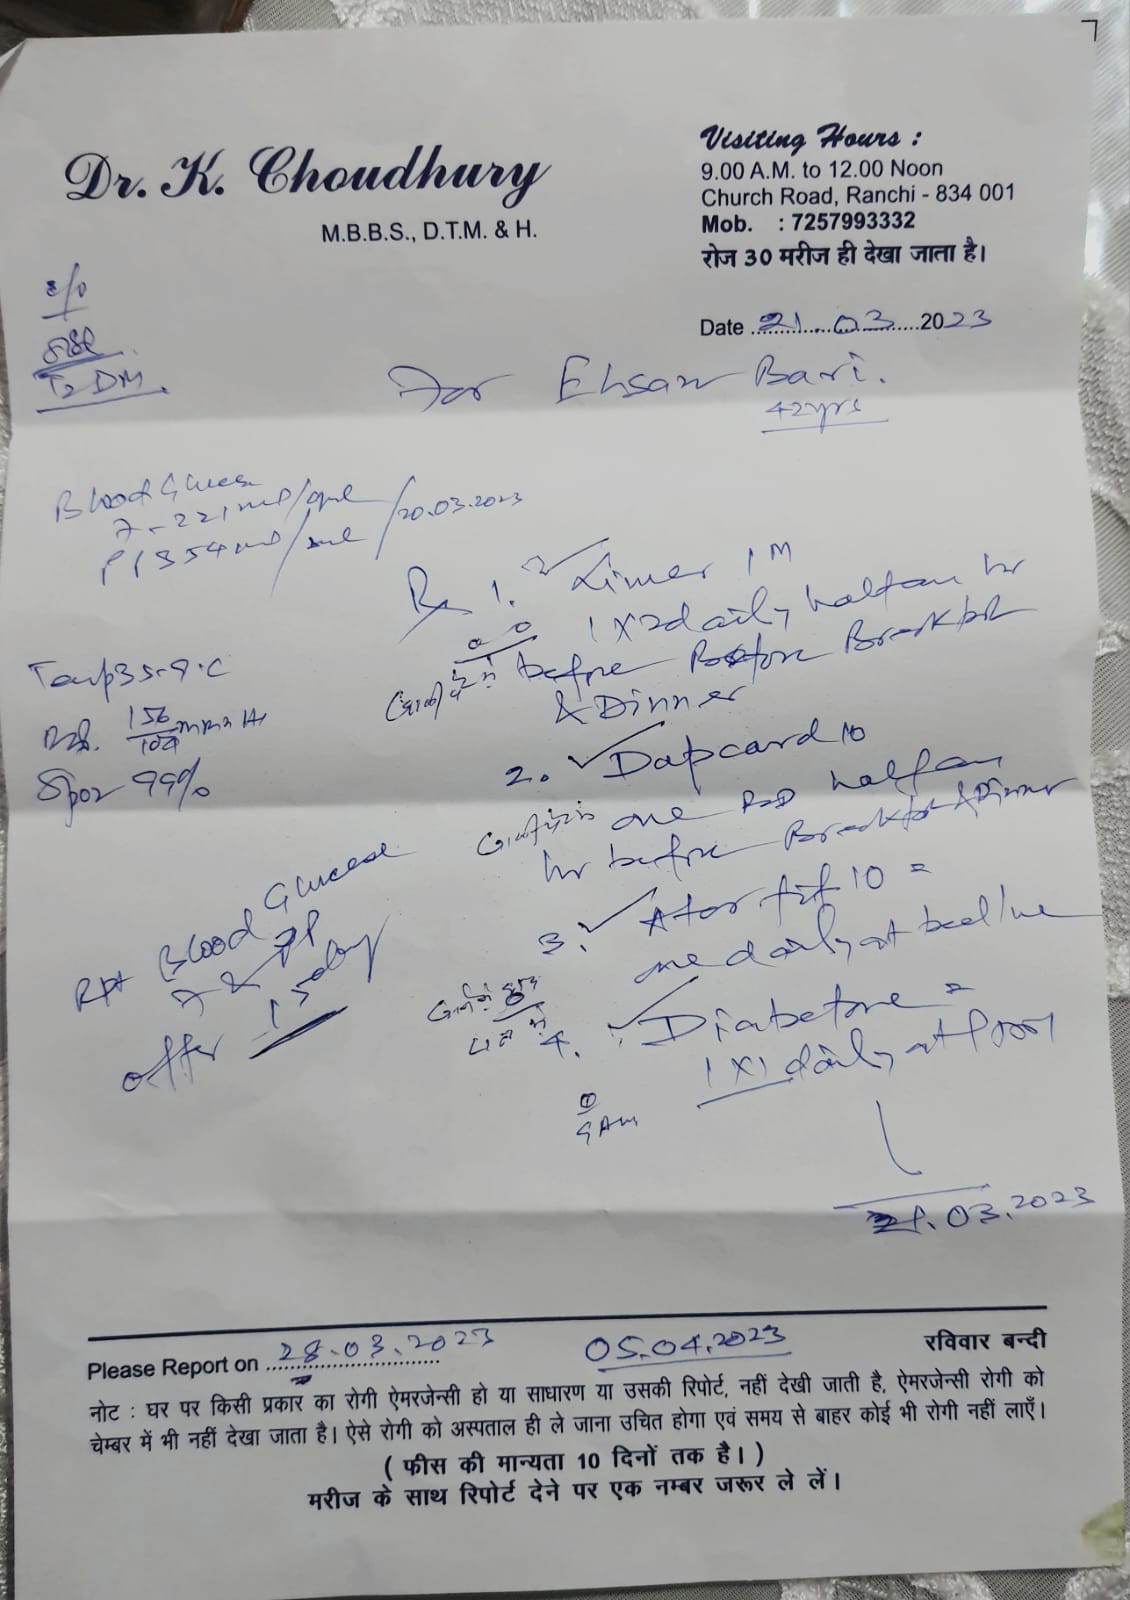 Dr. K. Choudhury
M.B.B.S., D.T.M. & H.
Visiting Hours :
9.00 A.M. to 12.00 Noon
Church Road, Ranchi - 834 001
Mob. : 7257993332
रोज 30 मरीज ही देखा जाता है।
Date 21.03.2023
T2DM
For Ehsan Bari.
42yrs
Blood Glucose
F - 221 /20.03.2023
354
Temp 35.9°C
156
104 mm
Spo2 99%
Rx 1. 1 M
1 X 2 daily half an hr
before Before Breakfast
& Dinner
खाली पेट में
2. Dapcard 10
one BD half an
hr before Breakfast & Dinner
खाली पेट में
3. 10 =
one daily at bed time
Rpt Blood Glucose
F & PP
after 15 day
4. Diabetone =
1 X 1 daily at
9 AM
21.03.2023
Please Report on 28.03.2023 05.04.2023 रविवार बन्दी
नोट : घर पर किसी प्रकार का रोगी ऐमरजेन्सी हो या साधारण या उसकी रिपोर्ट, नहीं देखी जाती है, ऐमरजेन्सी रोगी को
चेम्बर में भी नहीं देखा जाता है। ऐसे रोगी को अस्पताल ही ले जाना उचित होगा एवं समय से बाहर कोई भी रोगी नहीं लाएँ।
( फीस की मान्यता 10 दिनों तक है। )
मरीज के साथ रिपोर्ट देने पर एक नम्बर जरूर ले लें।